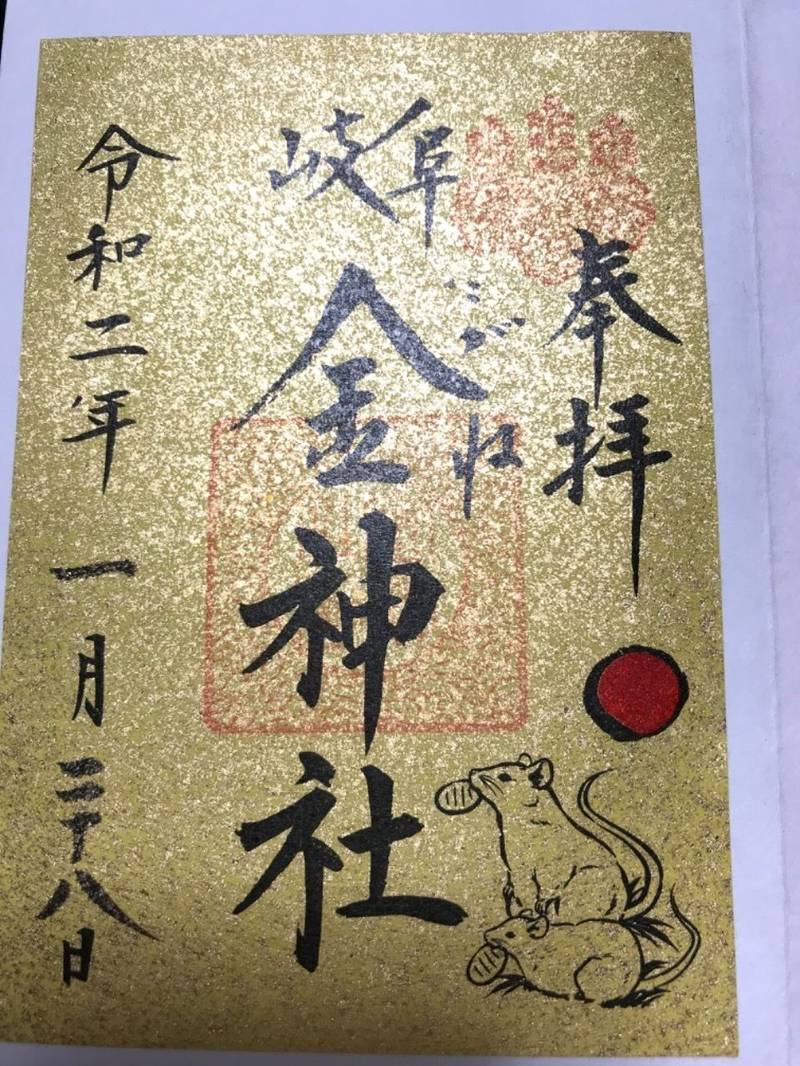 奉拝
岐阜
こがね
金神社
令和二年
一月二十八日